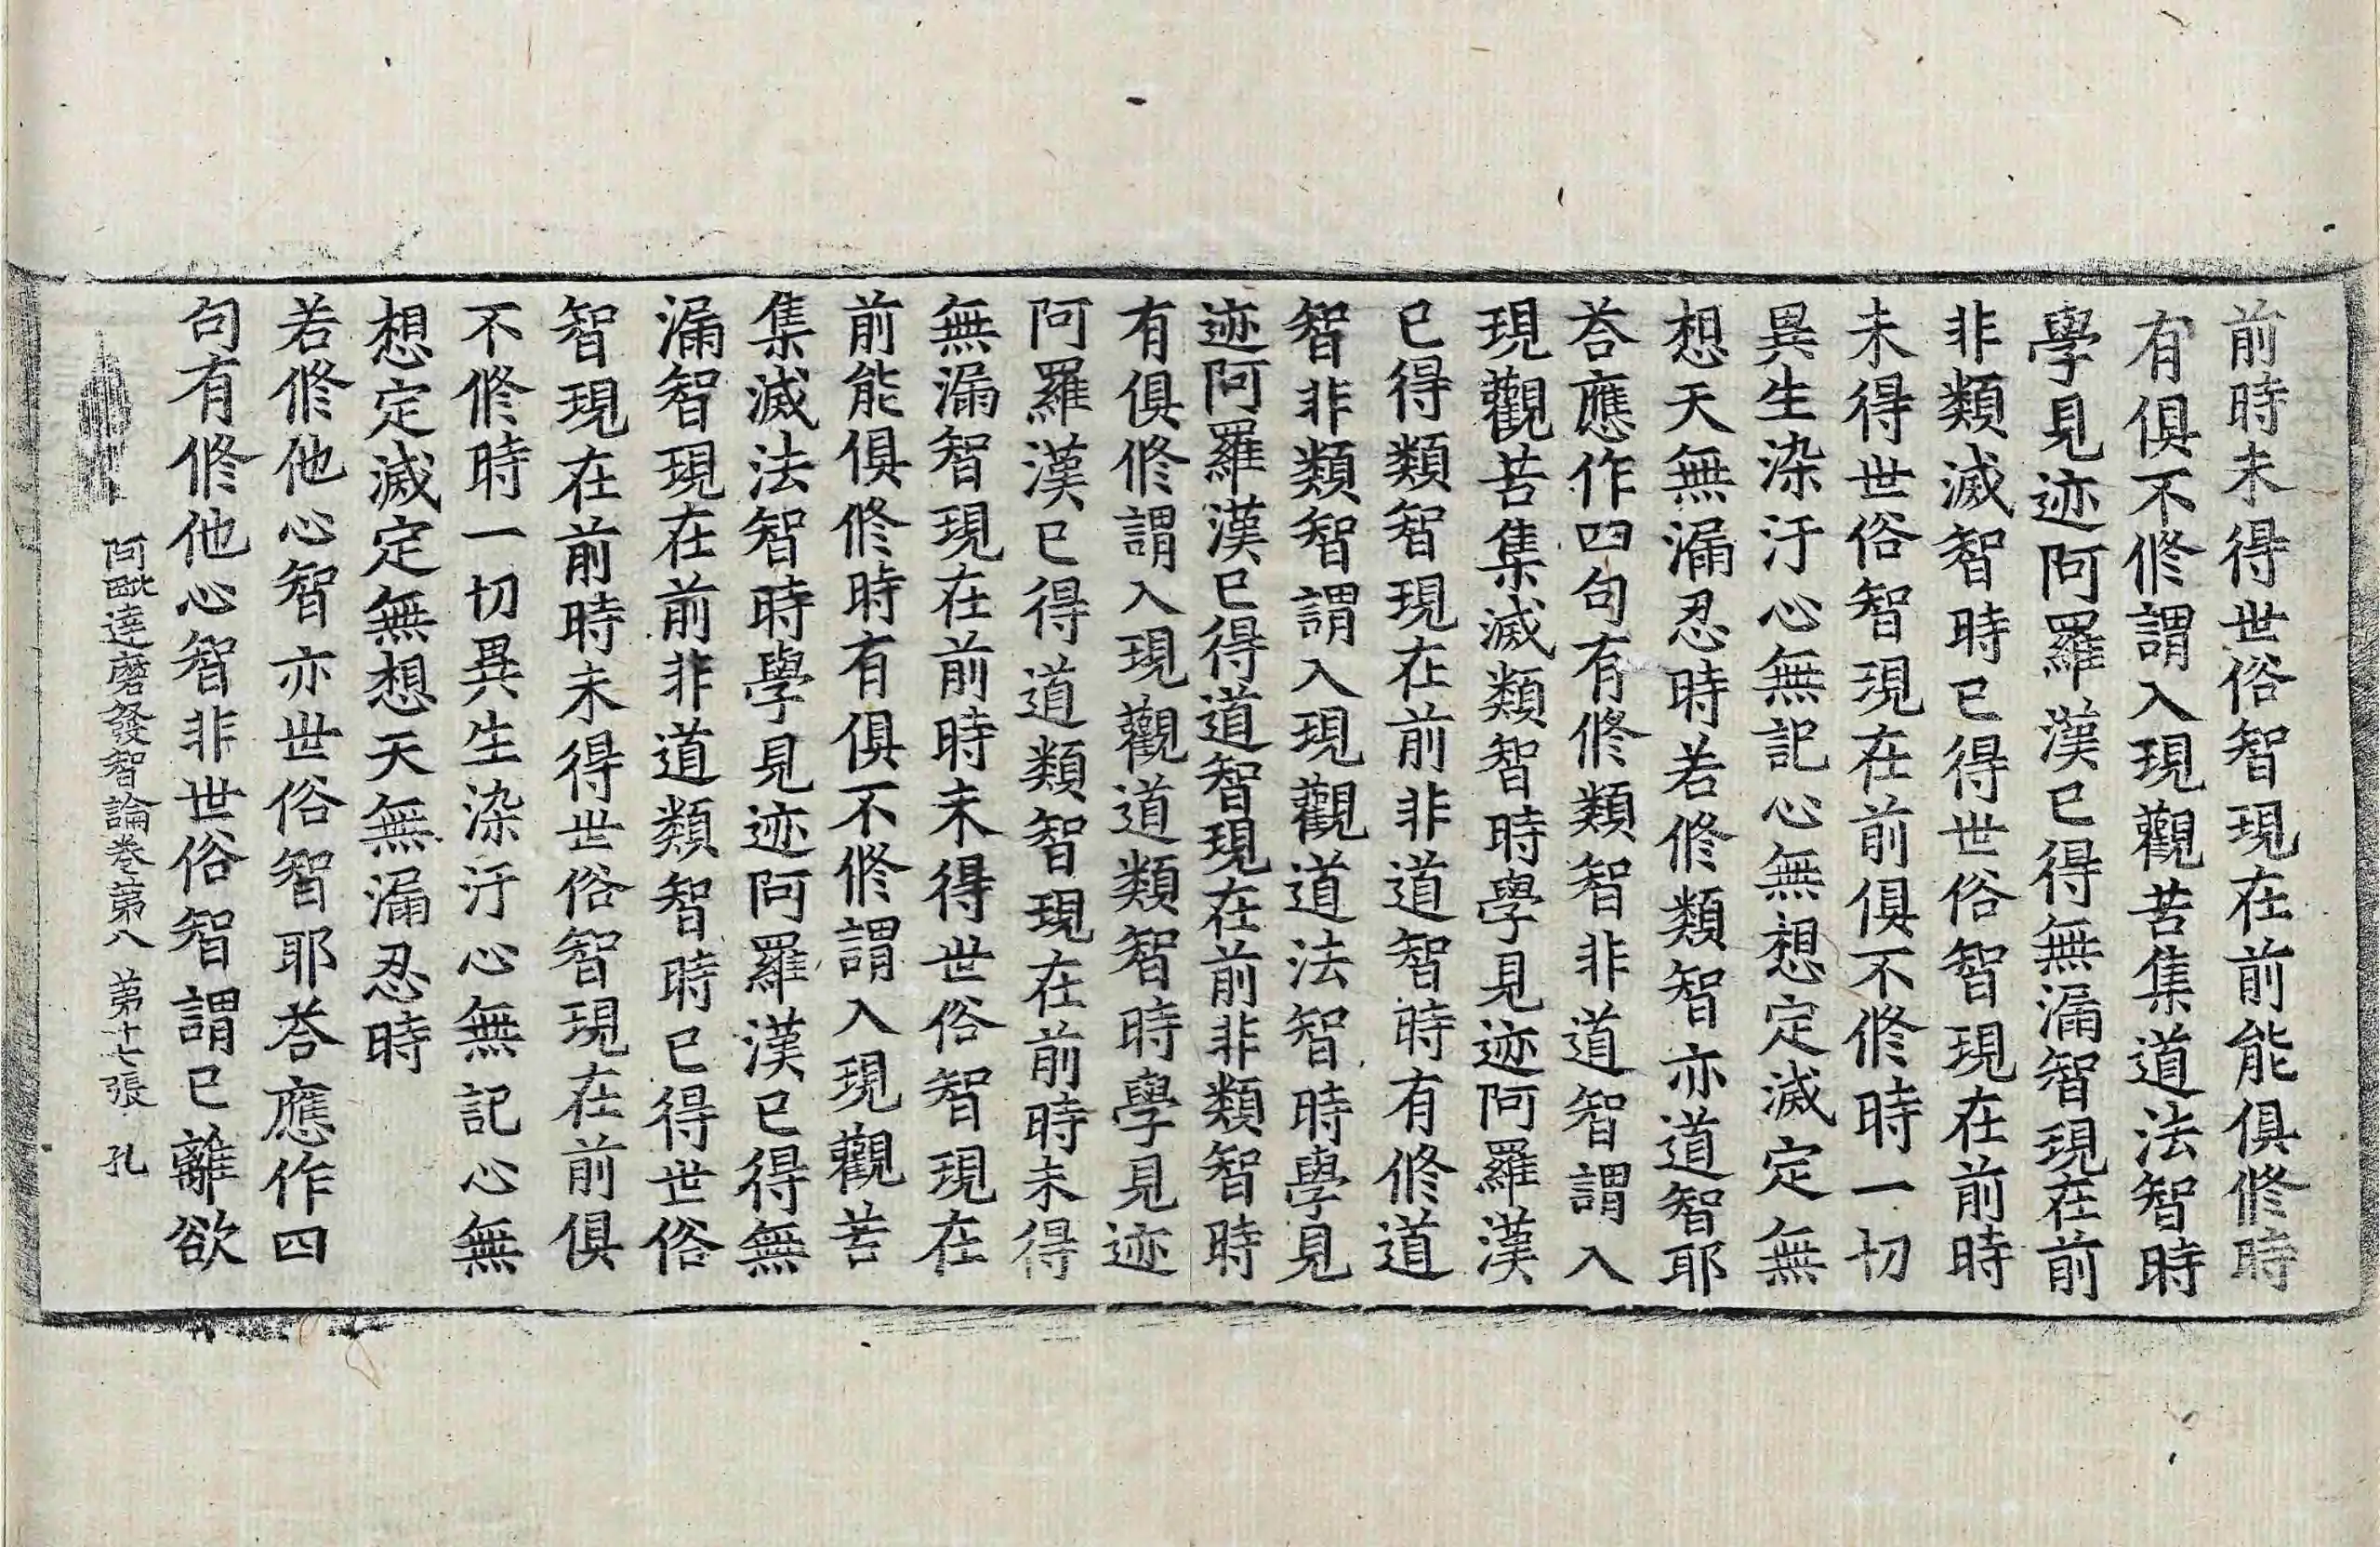 前時未得世俗智現在前能俱修時
有俱不修謂入現觀苦集道法智時
學見迹阿羅漢已得無漏智現在前
非類滅智時已得世俗智現在前時
未得世俗智現在前俱不修時一切
異生染汙心無記心無想定滅定無
想天無漏忍時若修類智亦道智耶
荅應作四句有修類智非道智謂入
現觀苦集滅類智時學見迹阿羅漢
已得類智現在前非道智時有修道
智非類智謂入現觀道法智時學見
迹阿羅漢已得道智現在前非類智時
有俱修謂入現觀道類智時學見迹
阿羅漢已得道類智現在前時未得
無漏智現在前時未得世俗智現在
前能俱修時有俱不修謂入現觀苦
集滅法智時學見迹阿羅漢已得無
漏智現在前非道類智時已得世俗
智現在前時未得世俗智現在前俱
不修時一切異生染汙心無記心無
想定滅定無想天無漏忍時
若修他心智亦世俗智耶荅應作四
句有修他心智非世俗智謂已離欲
阿毗達磨發智論卷第八 第十七張 孔